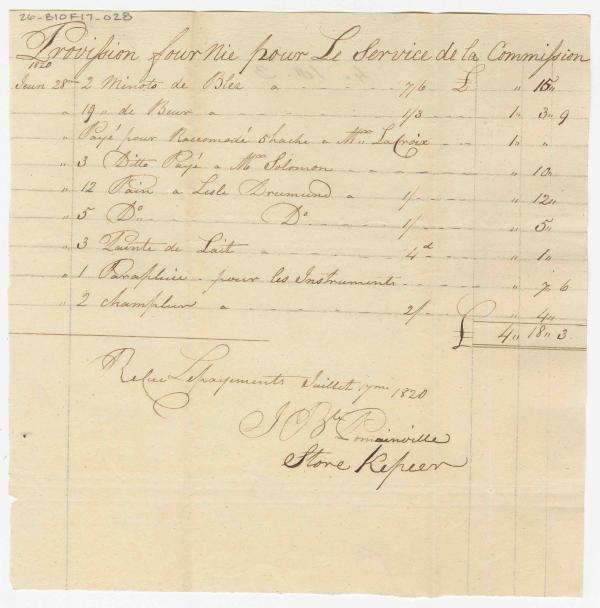 26-B10F17-028
Provission four nie pour Le Service de la Commission
1820
Jeun 28 2 Minots de Blez a 7/6 £ " 15"
" 19 " de Beur a 1/3 1" 3" 9
" Payé pour Raccomodé 5 hache a Mr. LaCroix 1" "
" 3 Ditto Payé a Mr. Solomon " 10"
" 12 Pain a Lisle Drumund a 1/- " 12"
" 5 Do. Do. 1/- " 5"
" 3 Painte de Lait a 4d " 1"
" 1 Parapluie pour les Instruments " 7" 6
" 2 Champlur a 2/- " 4"
£ 4" 18" 3
Relue Lepayements Juillet 17me 1820
J Bte Pomainville
Store Kepeer